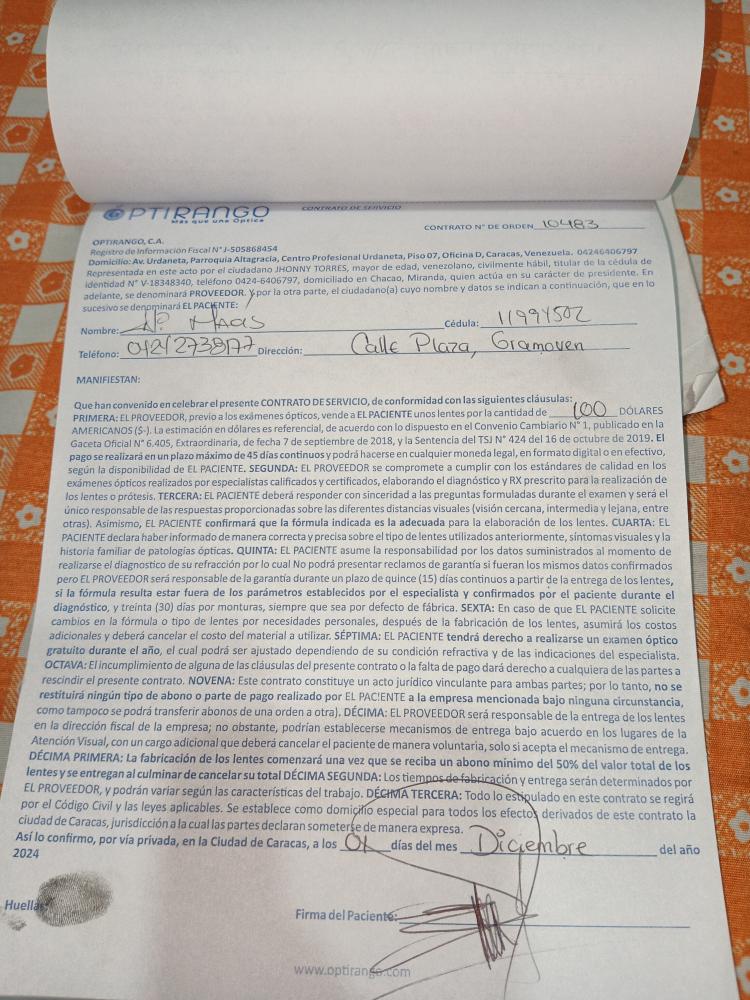 OPTIRANGO
Más que una Óptica
CONTRATO DE SERVICIO
CONTRATO N° DE ORDEN 10483
OPTIRANGO, C.A.
Registro de Información Fiscal N° J-505868454
Domicilio: Av. Urdaneta, Parroquia Altagracia, Centro Profesional Urdaneta, Piso 07, Oficina D, Caracas, Venezuela. 04246406797
Representada en este acto por el ciudadano JHONNY TORRES, mayor de edad, venezolano, civilmente hábil, titular de la cédula de
identidad N° V-18348340, teléfono 0424-6406797, domiciliado en Chacao, Miranda, quien actúa en su carácter de presidente. En
adelante, se denominará PROVEEDOR. Y por la otra parte, el ciudadano(a) cuyo nombre y datos se indican a continuación, que en lo
sucesivo se denominará EL PACIENTE:
Nombre: Cédula: 11994502
Teléfono: Dirección: Calle Plaza, Gramoven
MANIFIESTAN:
Que han convenido en celebrar el presente CONTRATO DE SERVICIO, de conformidad con las siguientes cláusulas:
PRIMERA: EL PROVEEDOR, previo a los exámenes ópticos, vende a EL PACIENTE unos lentes por la cantidad de 100 DÓLARES
AMERICANOS ($-). La estimación en dólares es referencial, de acuerdo con lo dispuesto en el Convenio Cambiario N° 1, publicado en la
Gaceta Oficial N° 6.405, Extraordinaria, de fecha 7 de septiembre de 2018, y la Sentencia del TSJ N° 424 del 16 de octubre de 2019. El
pago se realizará en un plazo máximo de 45 días continuos y podrá hacerse en cualquier moneda legal, en formato digital o en efectivo,
según la disponibilidad de EL PACIENTE. SEGUNDA: EL PROVEEDOR se compromete a cumplir con los estándares de calidad en los
exámenes ópticos realizados por especialistas calificados y certificados, elaborando el diagnóstico y RX prescrito para la realización de
los lentes o prótesis. TERCERA: EL PACIENTE deberá responder con sinceridad a las preguntas formuladas durante el examen y será el
único responsable de las respuestas proporcionadas sobre las diferentes distancias visuales (visión cercana, intermedia y lejana, entre
otras). Asimismo, EL PACIENTE confirmará que la fórmula indicada es la adecuada para la elaboración de los lentes. CUARTA: EL
PACIENTE declara haber informado de manera correcta y precisa sobre el tipo de lentes utilizados anteriormente, síntomas visuales y la
historia familiar de patologías ópticas. QUINTA: EL PACIENTE asume la responsabilidad por los datos suministrados al momento de
realizarse el diagnostico de su refracción por lo cual No podrá presentar reclamos de garantía si fueran los mismos datos confirmados
pero EL PROVEEDOR será responsable de la garantía durante un plazo de quince (15) días continuos a partir de la entrega de los lentes,
si la fórmula resulta estar fuera de los parámetros establecidos por el especialista y confirmados por el paciente durante el
diagnóstico, y treinta (30) días por monturas, siempre que sea por defecto de fábrica. SEXTA: En caso de que EL PACIENTE solicite
cambios en la fórmula o tipo de lentes por necesidades personales, después de la fabricación de los lentes, asumirá los costos
adicionales y deberá cancelar el costo del material a utilizar. SÉPTIMA: EL PACIENTE tendrá derecho a realizarse un examen óptico
gratuito durante el año, el cual podrá ser ajustado dependiendo de su condición refractiva y de las indicaciones del especialista.
OCTAVA: El incumplimiento de alguna de las cláusulas del presente contrato o la falta de pago dará derecho a cualquiera de las partes a
rescindir el presente contrato. NOVENA: Este contrato constituye un acto jurídico vinculante para ambas partes; por lo tanto, no se
restituirá ningún tipo de abono o parte de pago realizado por EL PACIENTE a la empresa mencionada bajo ninguna circunstancia,
como tampoco se podrá transferir abonos de una orden a otra). DÉCIMA: EL PROVEEDOR será responsable de la entrega de los lentes
en la dirección fiscal de la empresa; no obstante, podrían establecerse mecanismos de entrega bajo acuerdo en los lugares de la
Atención Visual, con un cargo adicional que deberá cancelar el paciente de manera voluntaria, solo si acepta el mecanismo de entrega.
DÉCIMA PRIMERA: La fabricación de los lentes comenzará una vez que se reciba un abono mínimo del 50% del valor total de los
lentes y se entregan al culminar de cancelar su total DÉCIMA SEGUNDA: Los tiempos de fabricación y entrega serán determinados por
EL PROVEEDOR, y podrán variar según las características del trabajo. DÉCIMA TERCERA: Todo lo estipulado en este contrato se regirá
por el Código Civil y las leyes aplicables. Se establece como domicilio especial para todos los efectos derivados de este contrato la
ciudad de Caracas, jurisdicción a la cual las partes declaran someterse de manera expresa.
Así lo confirmo, por vía privada, en la Ciudad de Caracas, a los 01 días del mes Diciembre del año
2024
Huella:
Firma del Paciente:
www.optirango.com